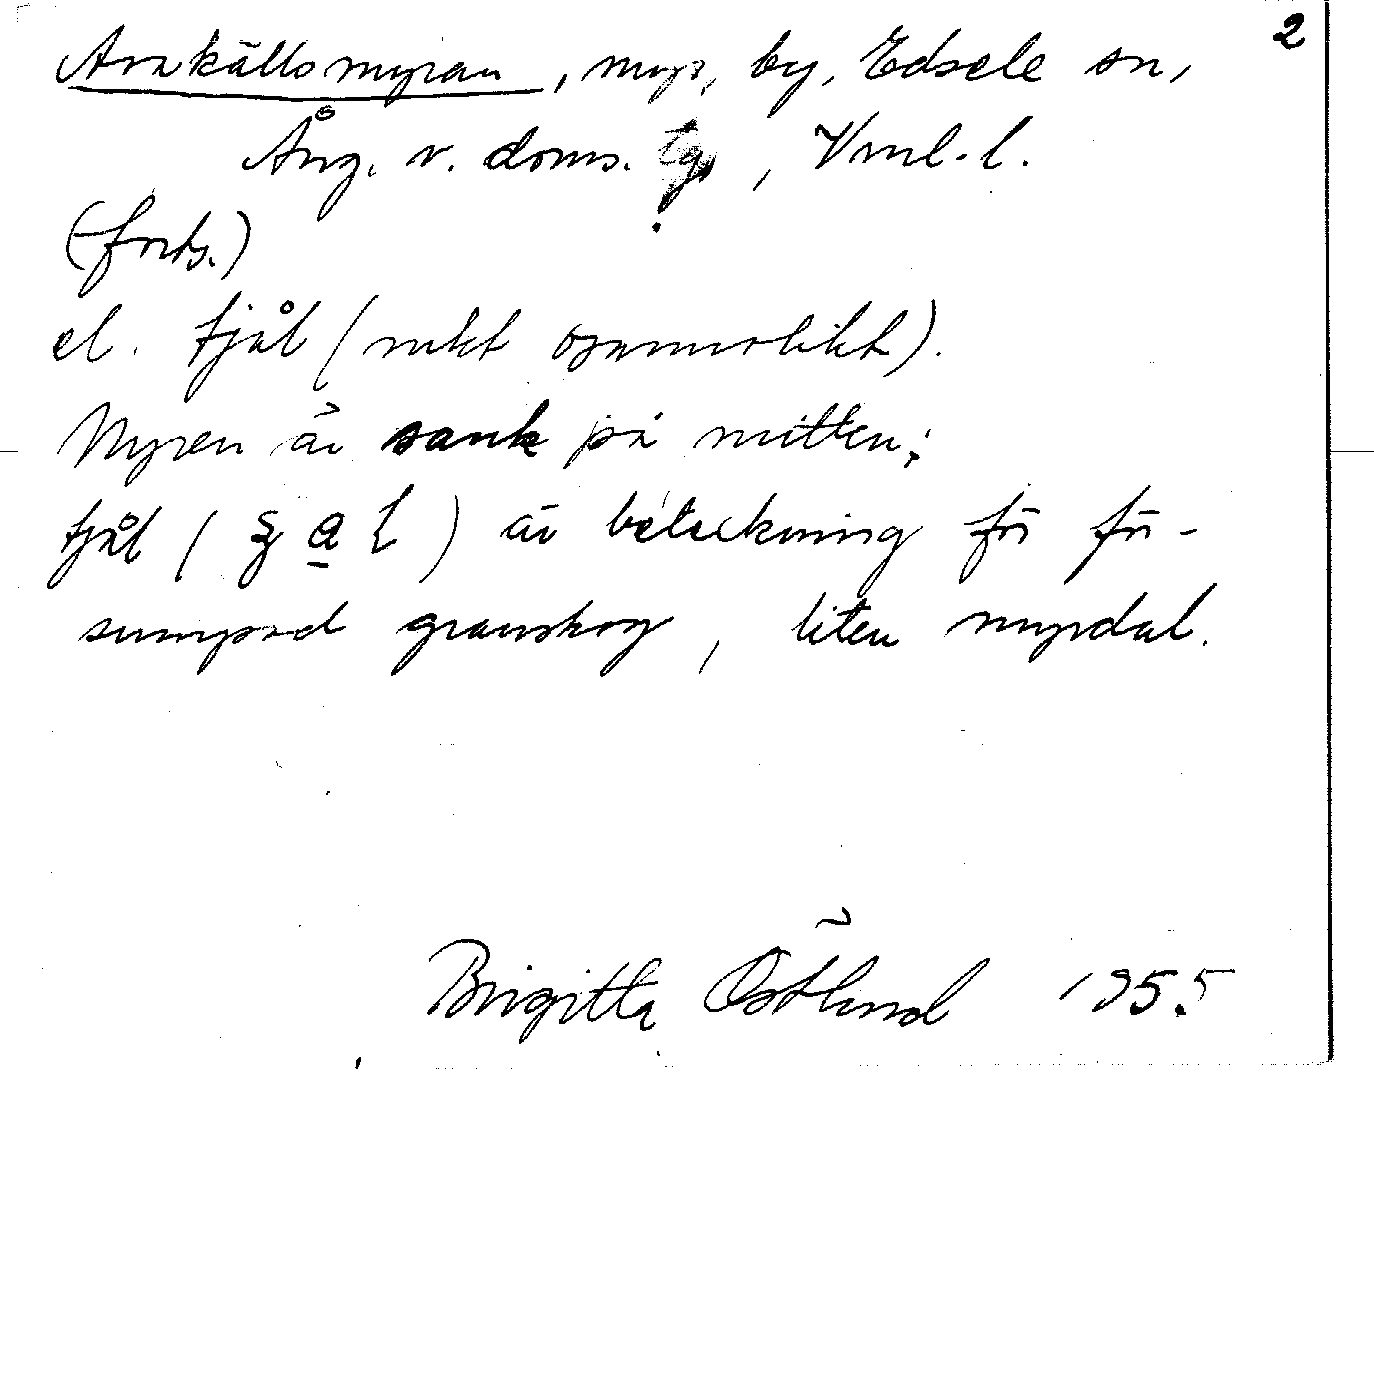 2
Arakällsmyran, myr, by, Edsele sn,
Ång. v. doms. tg, Vnl. l.
(forts.)
el. tjål (mkt osannolikt).
Myren är sank på mitten;
tjål ( a̲ l ) är beteckning för för-
sumpad granskog, liten myrdal.
Birgitta Östlund 1955